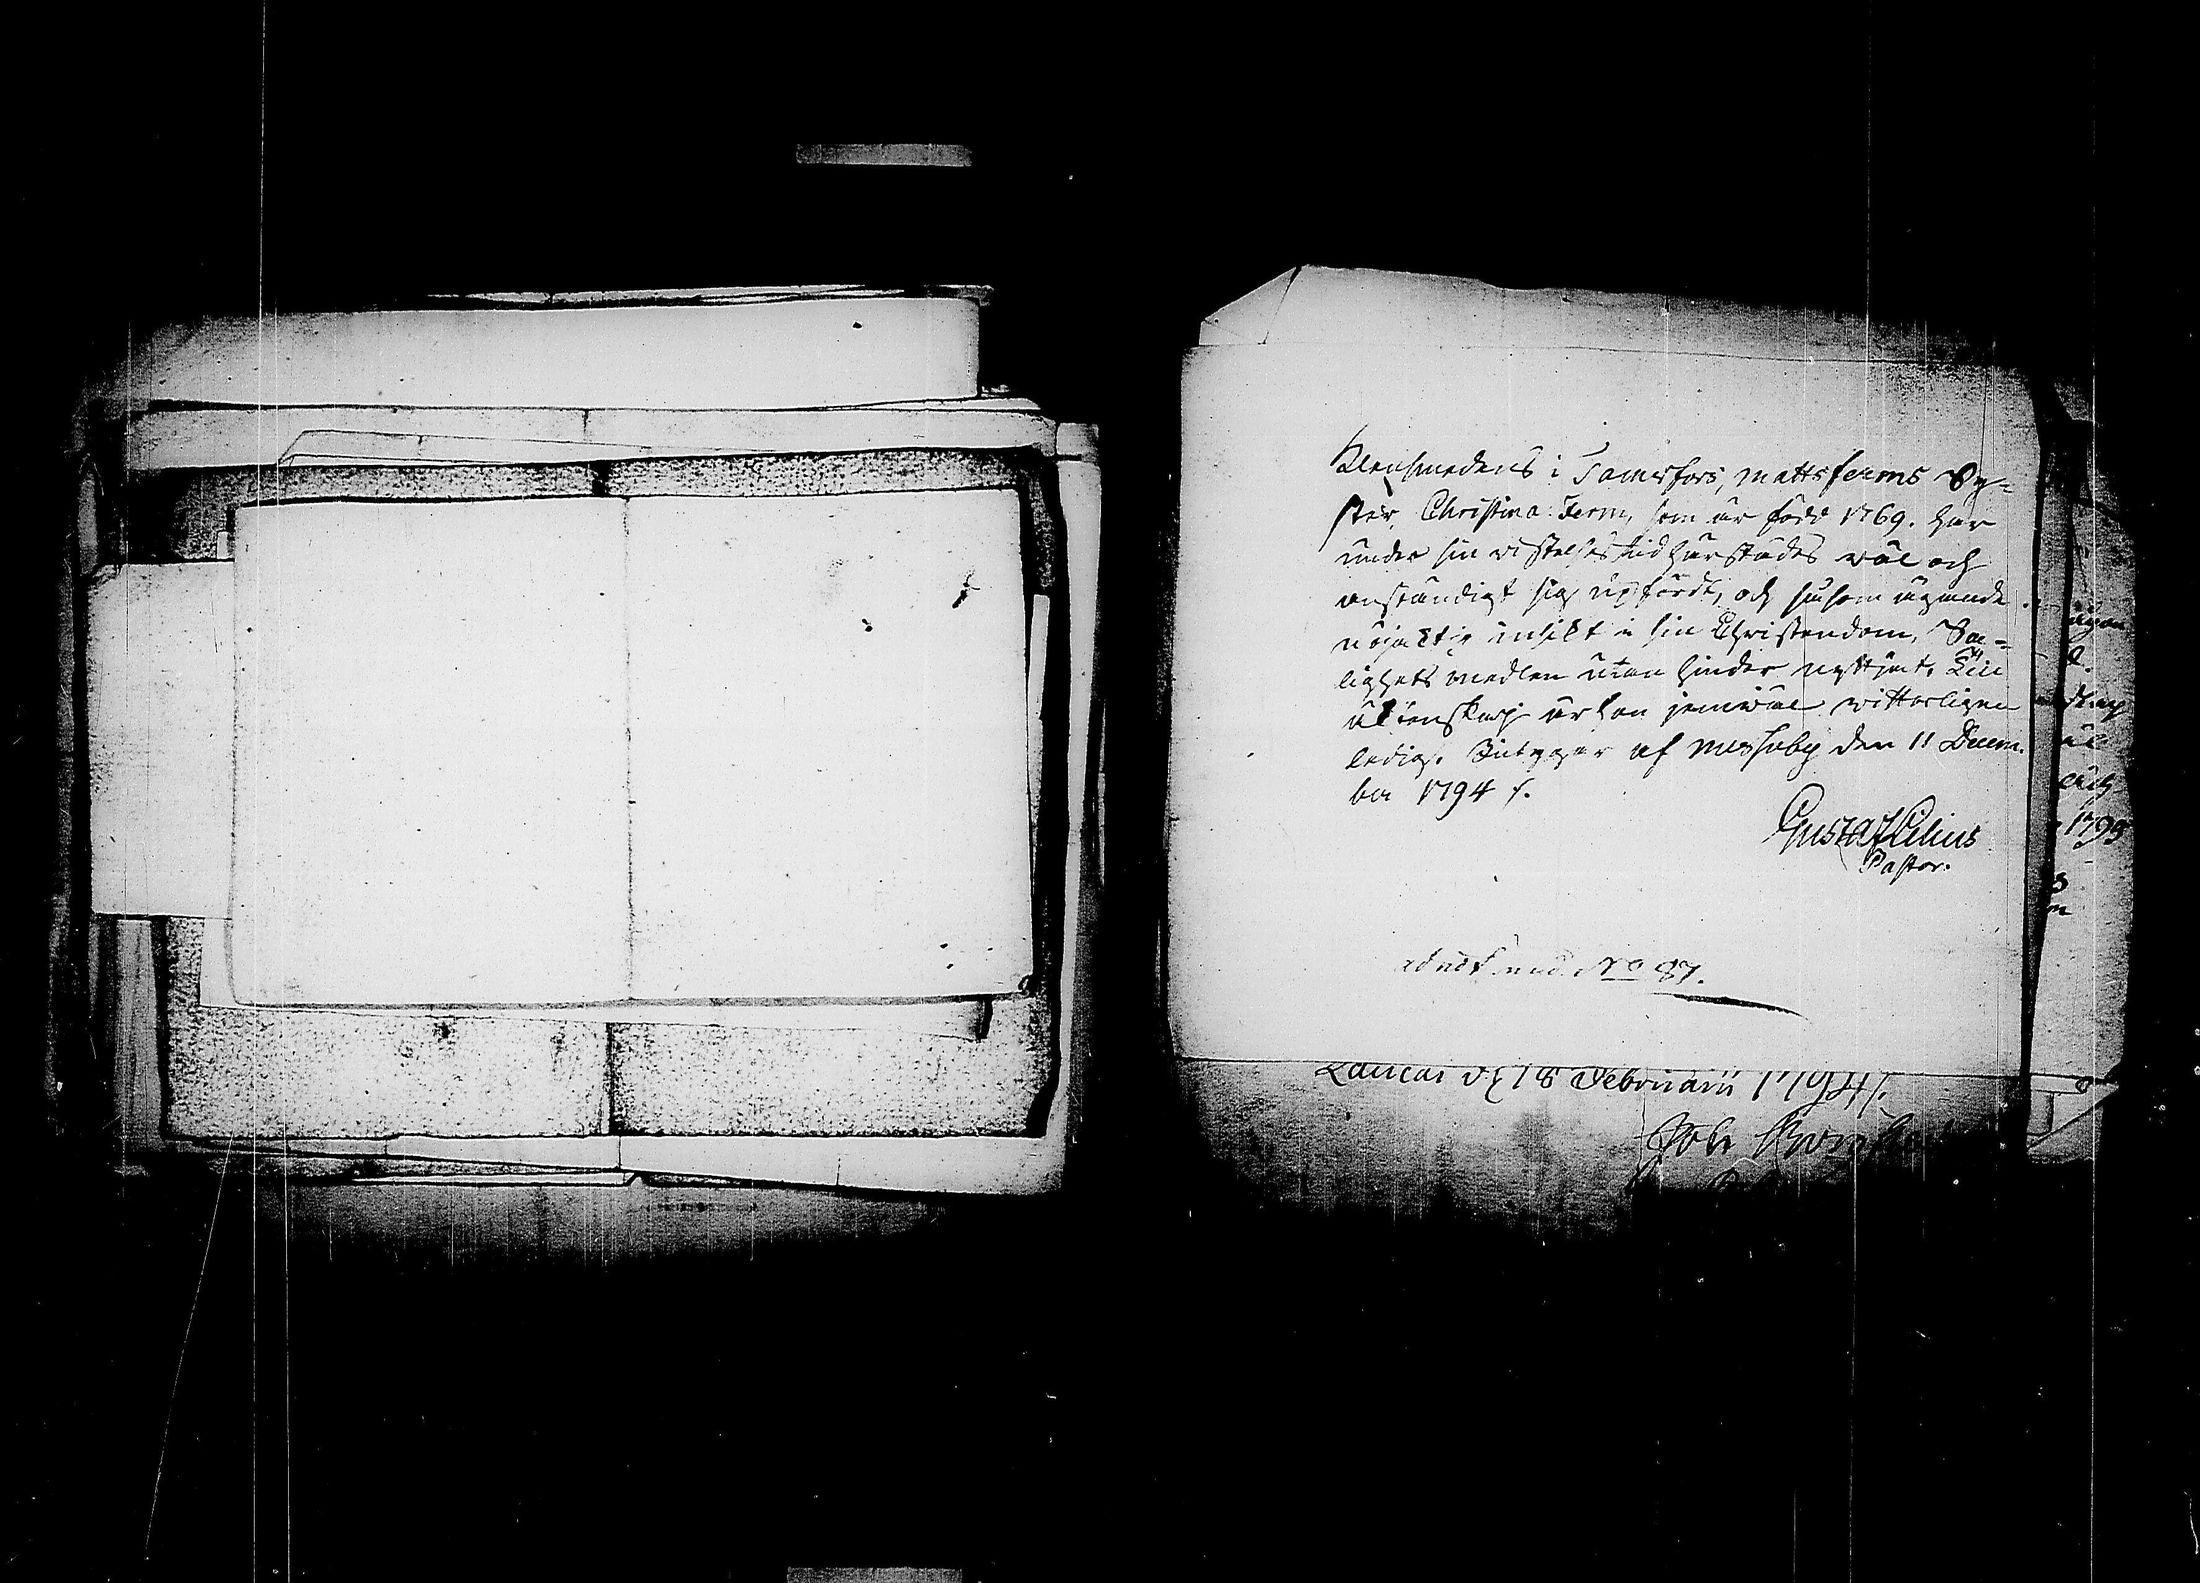 Klensmedens i Tammerfors, Matts ferms Sy-
ster, Christina Ferm, som är född 1769. har
under sin vistelsestid härstädes wäl och
anständigt sig upfördt, och såsom ägande
nöjaktig insikt i sin Christendom, Sa-
lighets medlen utan hinder nyttjat. Till
äktenskap är hon jemwäl witterligen
ledig. Betygar af Messuby den 11 Decem-
ber 1794 /.
Gustaf Lilius
Pastor.
No 87.
d 18 Februarii 1794 /.
Joh
1795